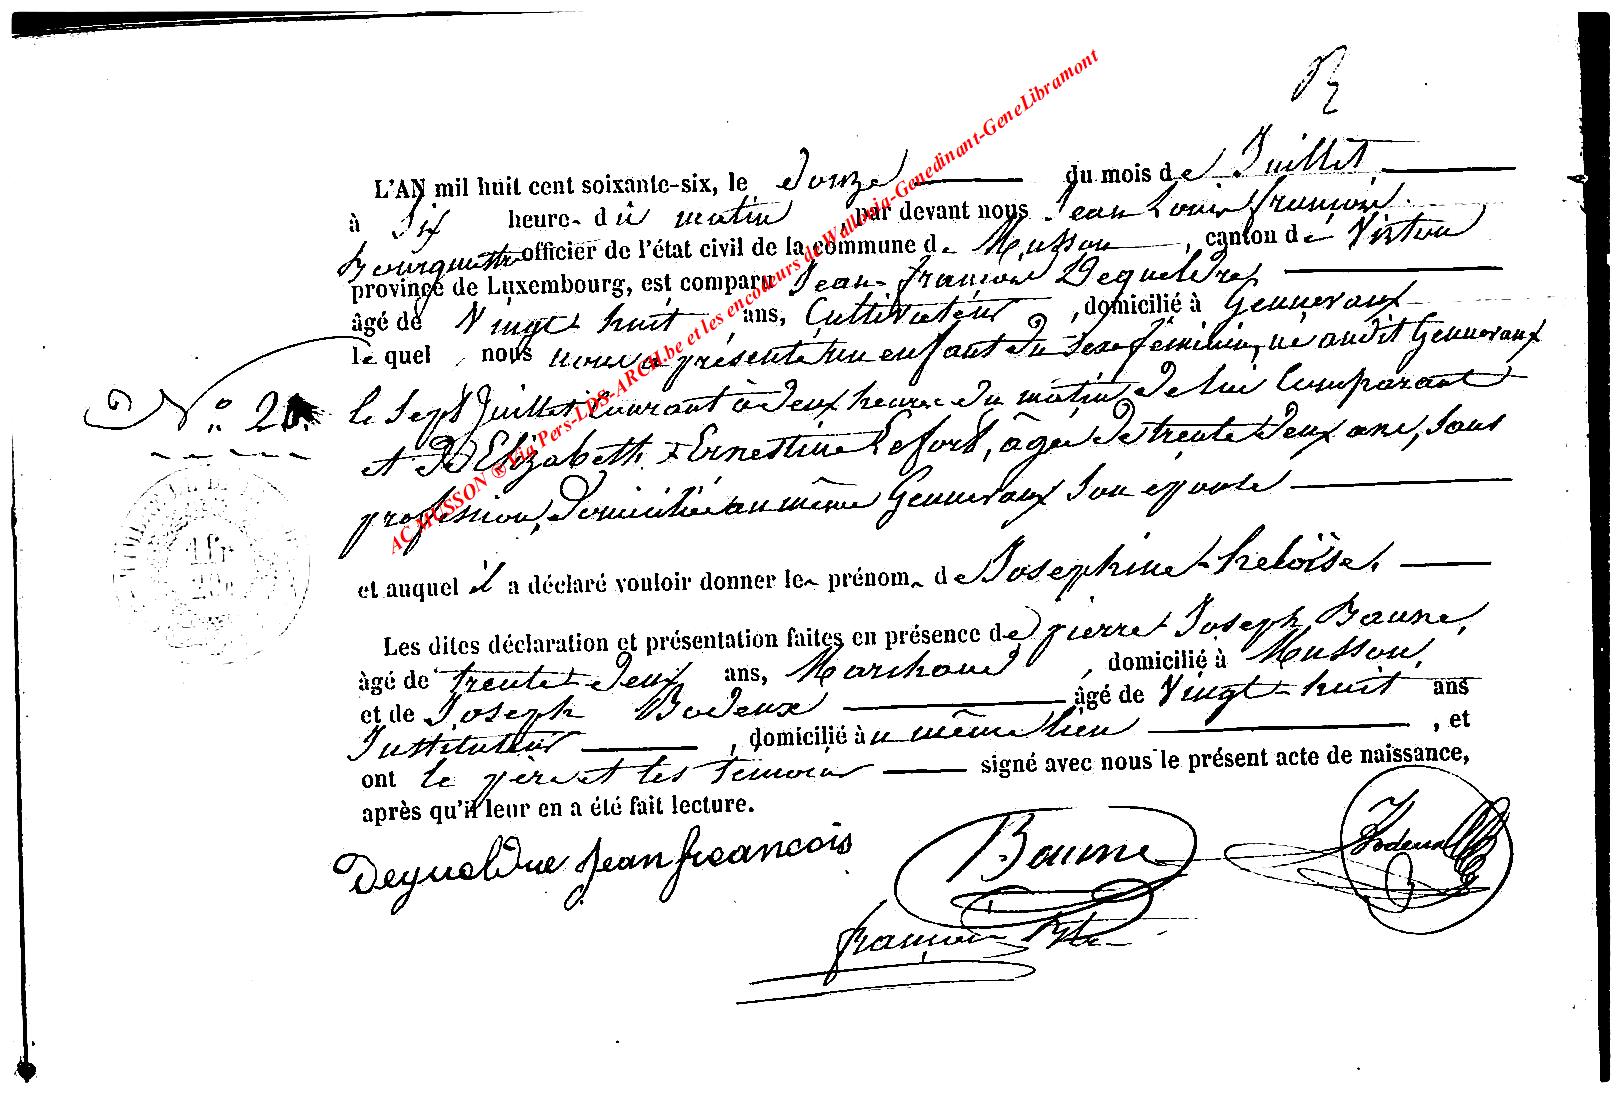 L'AN mil huit cent soixante-six, le Douze du mois de Juillet
à Six heure du matin, par devant nous Jean Louis françois
Bourguette officier de l'état civil de la commune de Musson, canton de Virton
province de Luxembourg, est comparu Jean-françois Dequeldre
âgé de Vingt huit ans, Cultivateur, domicilié à Gennevaux
le quel nous nous a présenté un enfant du sexe féminin, né au dit Gennevaux
N.° 20. le Sept Juillet courant à deux heures du matin de lui Comparant
et de Elizabeth Ernestine Lefort, âgée de trente deux ans, sans
profession, domiciliée au même Gennevaux son épouse
et auquel il a déclaré vouloir donner le prénom de Josephine heloïse.
Les dites déclaration et présentation faites en présence de pierre Joseph Baune,
âgé de trente deux ans, Marchand, domicilié à Musson,
et de Joseph Bodeux âgé de Vingt huit ans
Instituteur, domicilié au même lieu, et
ont le père et les témoins signé avec nous le présent acte de naissance,
après qu'il leur en a été fait lecture.
Dequeldre jean francois Baune Bodeux
françois
1 fr
20c
AC MUSSON @ Via Pers-LDS-ARCH.be et les encodeurs de Wallonia-Genedinant-GeneLibramont